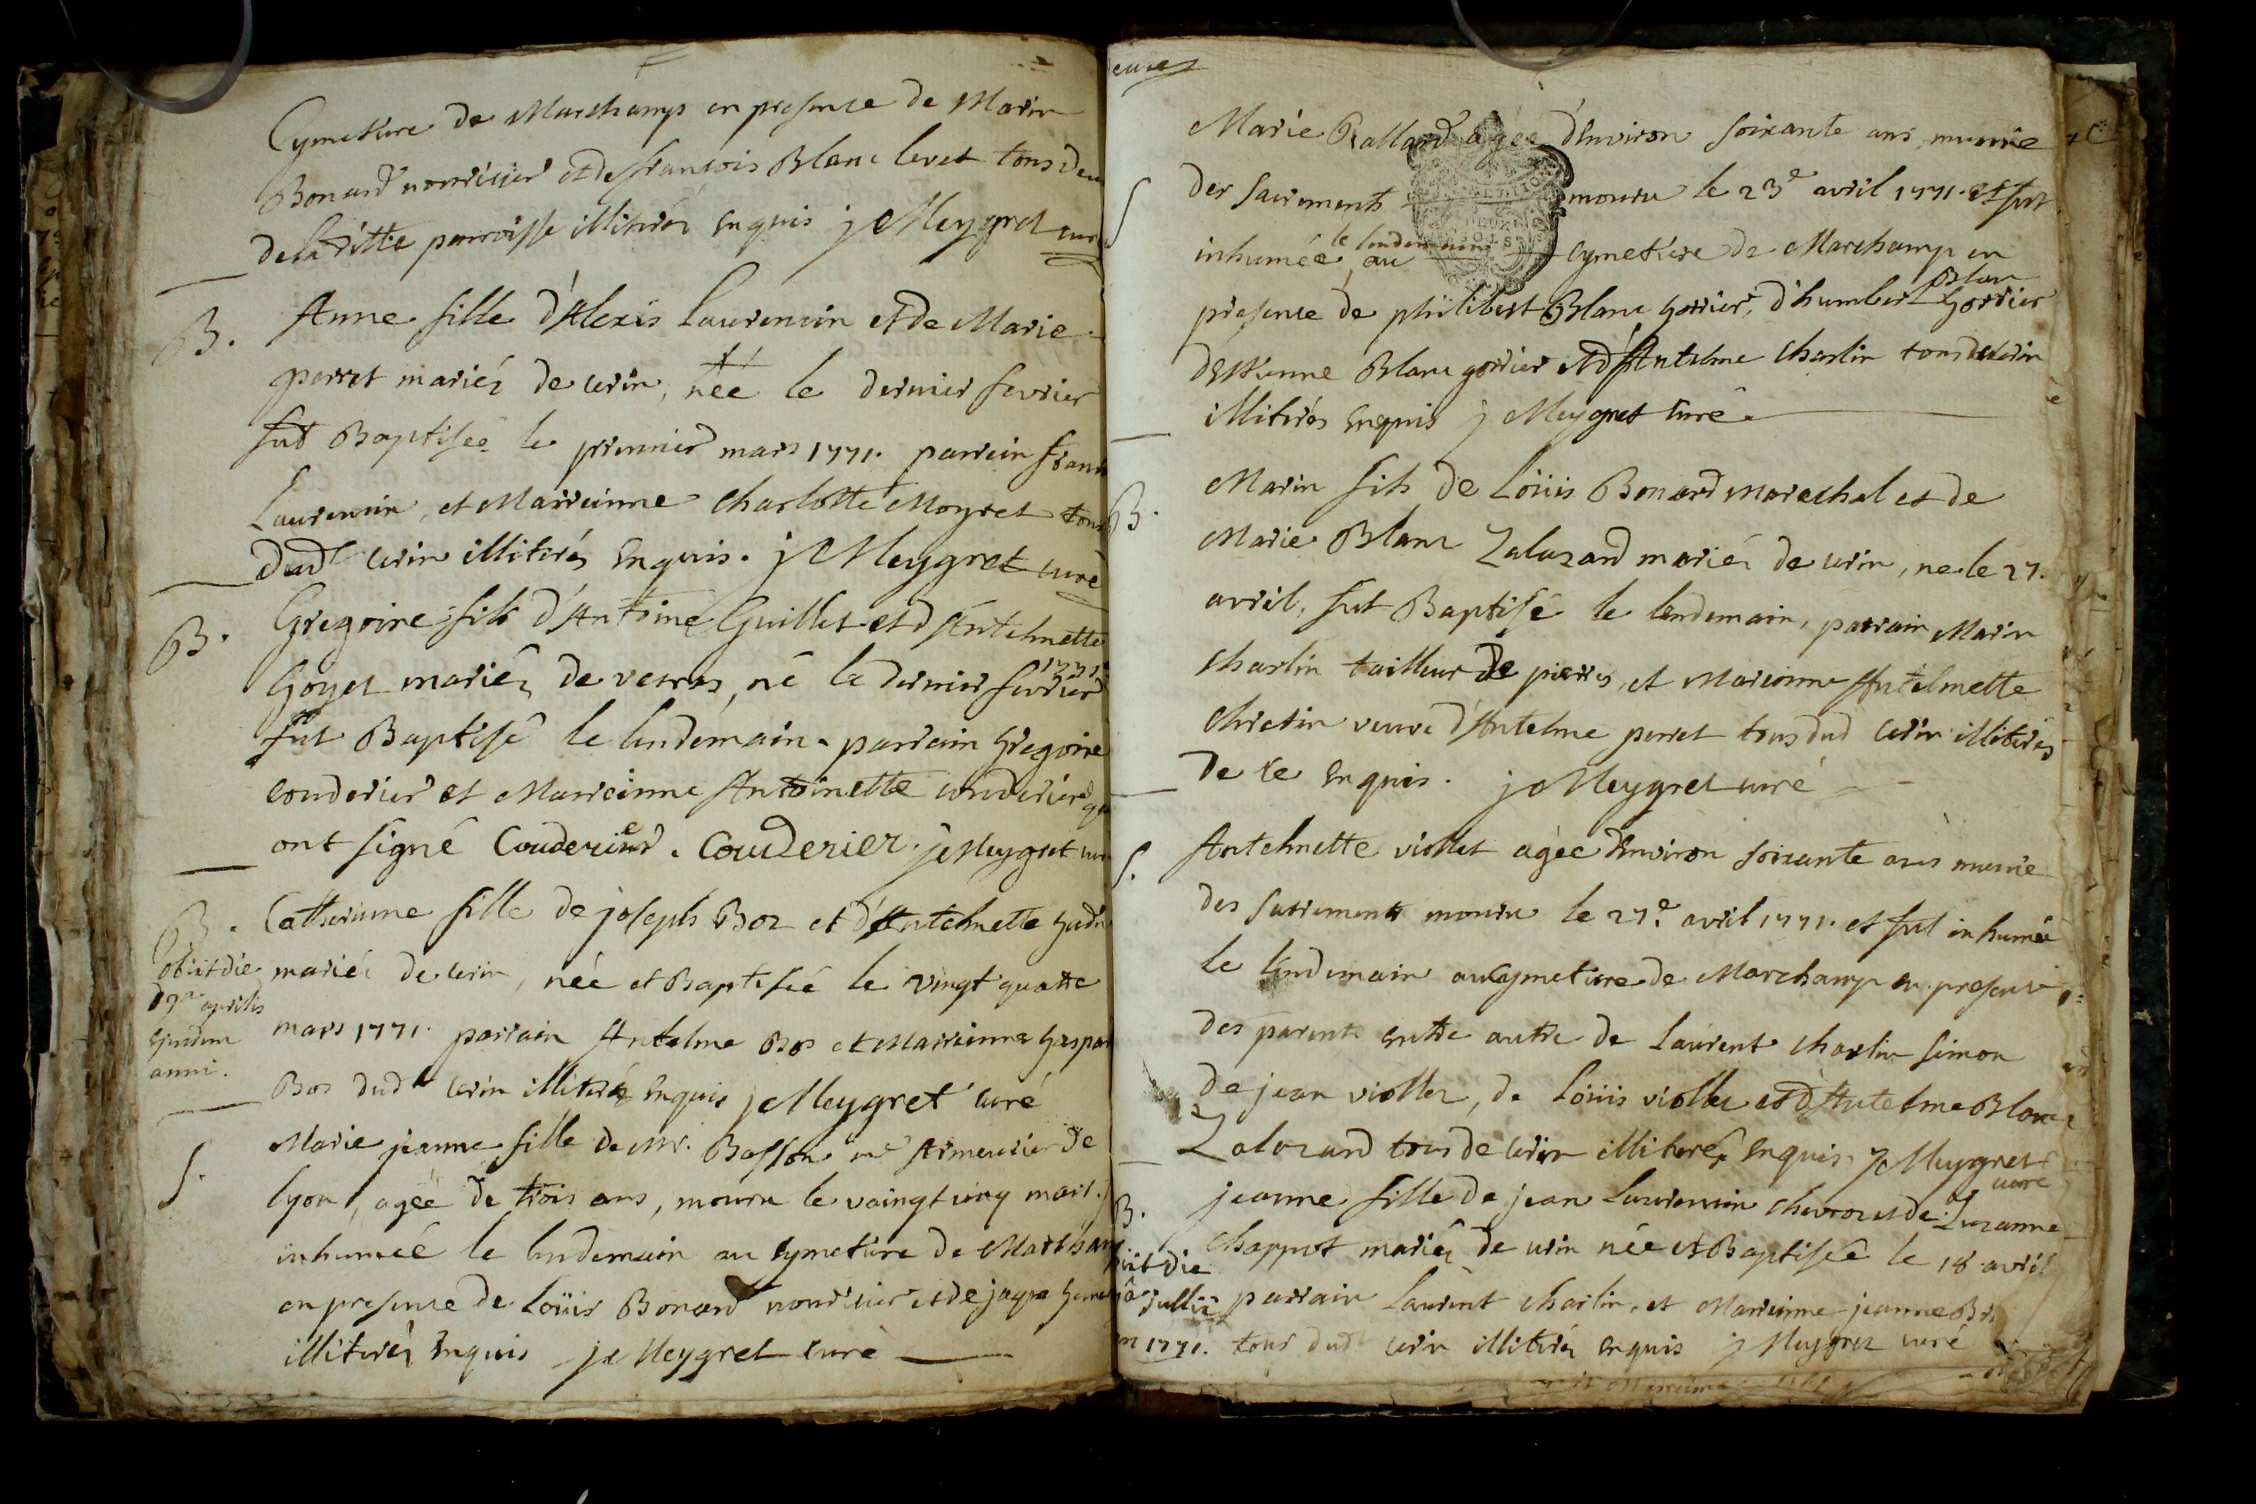 Cymetiere de Marchamp en presence de Marin
Bonard nouricier et de francois Blanc levet tous deux
de laditte parroisse illitirés enquis j Meygret curé
B. Anne fille d'Alexis Laurencin et de Marie
perret mariés de cerin, née le dernier fevrier
fut Baptisée le premier mars 1771. parrein
Laurencin, et Marreinne charlotte Moyret tous
dud cerin illitirés enquis. j Meygret curé
B. Gregoire fils d'Antoine Guillet et d'Antelmette
Goyet mariés de vetras, né le dernier fevrier 1771
fut Baptisé le lendemain. parrain Gregoire
couderier et Marreinne Antoinette couderier qui
ont signé Couderier. Couderier. j Meygret curé
B. Catherinne fille de joseph Boz et d'Antelmette
mariés de cerin, née et Baptisée le vingt quatre
mars 1771. parrain Antelme Bos et Marreinne
Bos dud cerin illitirés enquis j Meygret curé
obiit die
aprilis
ejusdem
anni.
S. Marie jeanne fille de mr. Basson me Armeurier de
lyon, agée de trois ans, mouru le vaingt cinq mars.
inhumée le lendemain au cymetiere de Marchamp
en presence de Loüis Bonard nouricier et de
illitirés enquis j Meygret curé
curé
S Marie Rallard agée d'environ soixante ans, munie
des sacrements mouru le 23e avril 1771. et fut
inhumée le lendemain au cymetiere de Marchamp en
presence de philibert Blanc gorrier, d'humbert Blanc gorrier
d'Etienne Blanc gorrier et d'Antelme charlin tous de cerin
illitirés enquis j Meygret curé
B. Marin fils de Loüis Bonard marechal et de
Marie Blanc Lalozard mariés de cerin, ne le 27.
avril, fut Baptisé le lendemain, parrain Marin
charlin tailleur de pierres, et Mareinne Antelmette
chretin veuve d'Antelme perret tous dud cerin illitirés
de ce enquis. j Meygret curé
S. Antelmette viollet agée d'environ soixante ans munie
des sacrements mouru le 27e avril 1771. et fut inhumée
le lendemain au cymetiere de Marchamp en presence
des parents entre autre de Laurent charlin simon
de jean viollet, de Loüis viollet et d'Antelme Blanc
Lalozard tous de cerin illitirés enquis j Meygret
curé
B. jeanne fille de jean Laurencin et de Suzanne
chappot mariés de cerin née et Baptisée le 18 avril
parrain Laurent charlin, et Marreinne jeanne
tous dud cerin illitirés enquis j Meygret curé
obiit die
jullii
1771.